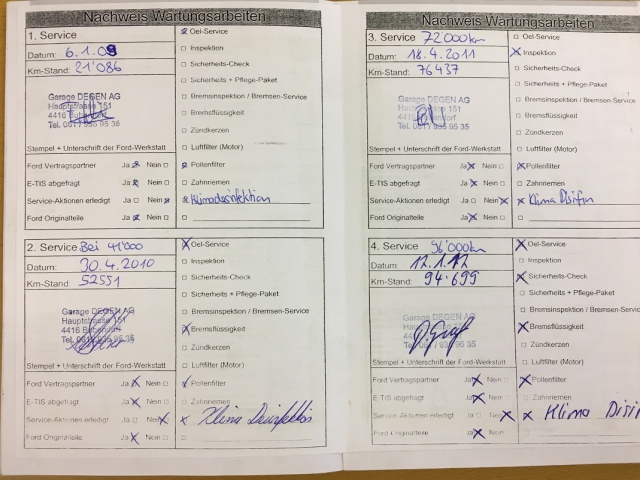 Nachweis Wartungsarbeiten
1. Service
Datum: 6.1.09
Km-Stand: 21'086
Garage DEGEN AG
Hauptstrasse 151
4416 Bubendorf
Tel. 061 / 935 95 35
Stempel + Unterschrift der Ford-Werkstatt
Ford Vertragspartner Ja Nein
E-TIS abgefragt Ja Nein
Service-Aktionen erledigt Ja Nein
Ford Originalteile Ja Nein
Oel-Service
Inspektion
Sicherheits-Check
Sicherheits + Pflege-Paket
Bremsinspektion / Bremsen-Service
Bremsflüssigkeit
Zündkerzen
Luftfilter (Motor)
Pollenfilter
Zahnriemen
Klimadesinfektion
2. Service Bei 41'000
Datum: 30.4.2010
Km-Stand: 52551
Garage DEGEN AG
Hauptstrasse 151
4416 Bubendorf
Tel. 061 / 935 95 35
Stempel + Unterschrift der Ford-Werkstatt
Ford Vertragspartner Ja Nein
E-TIS abgefragt Ja Nein
Service-Aktionen erledigt Ja Nein
Ford Originalteile Ja Nein
Oel-Service
Inspektion
Sicherheits-Check
Sicherheits + Pflege-Paket
Bremsinspektion / Bremsen-Service
Bremsflüssigkeit
Zündkerzen
Luftfilter (Motor)
Pollenfilter
Zahnriemen
Klima Desinfektion
Nachweis Wartungsarbeiten
3. Service 72000km
Datum: 18.4.2011
Km-Stand: 76437
Garage DEGEN AG
Hauptstrasse 151
4416 Bubendorf
Tel. 061 / 935 95 35
Stempel + Unterschrift der Ford-Werkstatt
Ford Vertragspartner Ja Nein
E-TIS abgefragt Ja Nein
Service-Aktionen erledigt Ja Nein
Ford Originalteile Ja Nein
Oel-Service
Inspektion
Sicherheits-Check
Sicherheits + Pflege-Paket
Bremsinspektion / Bremsen-Service
Bremsflüssigkeit
Zündkerzen
Luftfilter (Motor)
Pollenfilter
Zahnriemen
Klima
4. Service 96'000km
Datum:
Km-Stand: 94'699
Garage DEGEN AG
Hauptstrasse 151
4416 Bubendorf
Tel. 061 / 935 95 35
Stempel + Unterschrift der Ford-Werkstatt
Ford Vertragspartner Ja Nein
E-TIS abgefragt Ja Nein
Service-Aktionen erledigt Ja Nein
Ford Originalteile Ja Nein
Oel-Service
Inspektion
Sicherheits-Check
Sicherheits + Pflege-Paket
Bremsinspektion / Bremsen-Servic
Bremsflüssigkeit
Zündkerzen
Luftfilter (Motor)
Pollenfilter
Zahnriemen
Klima